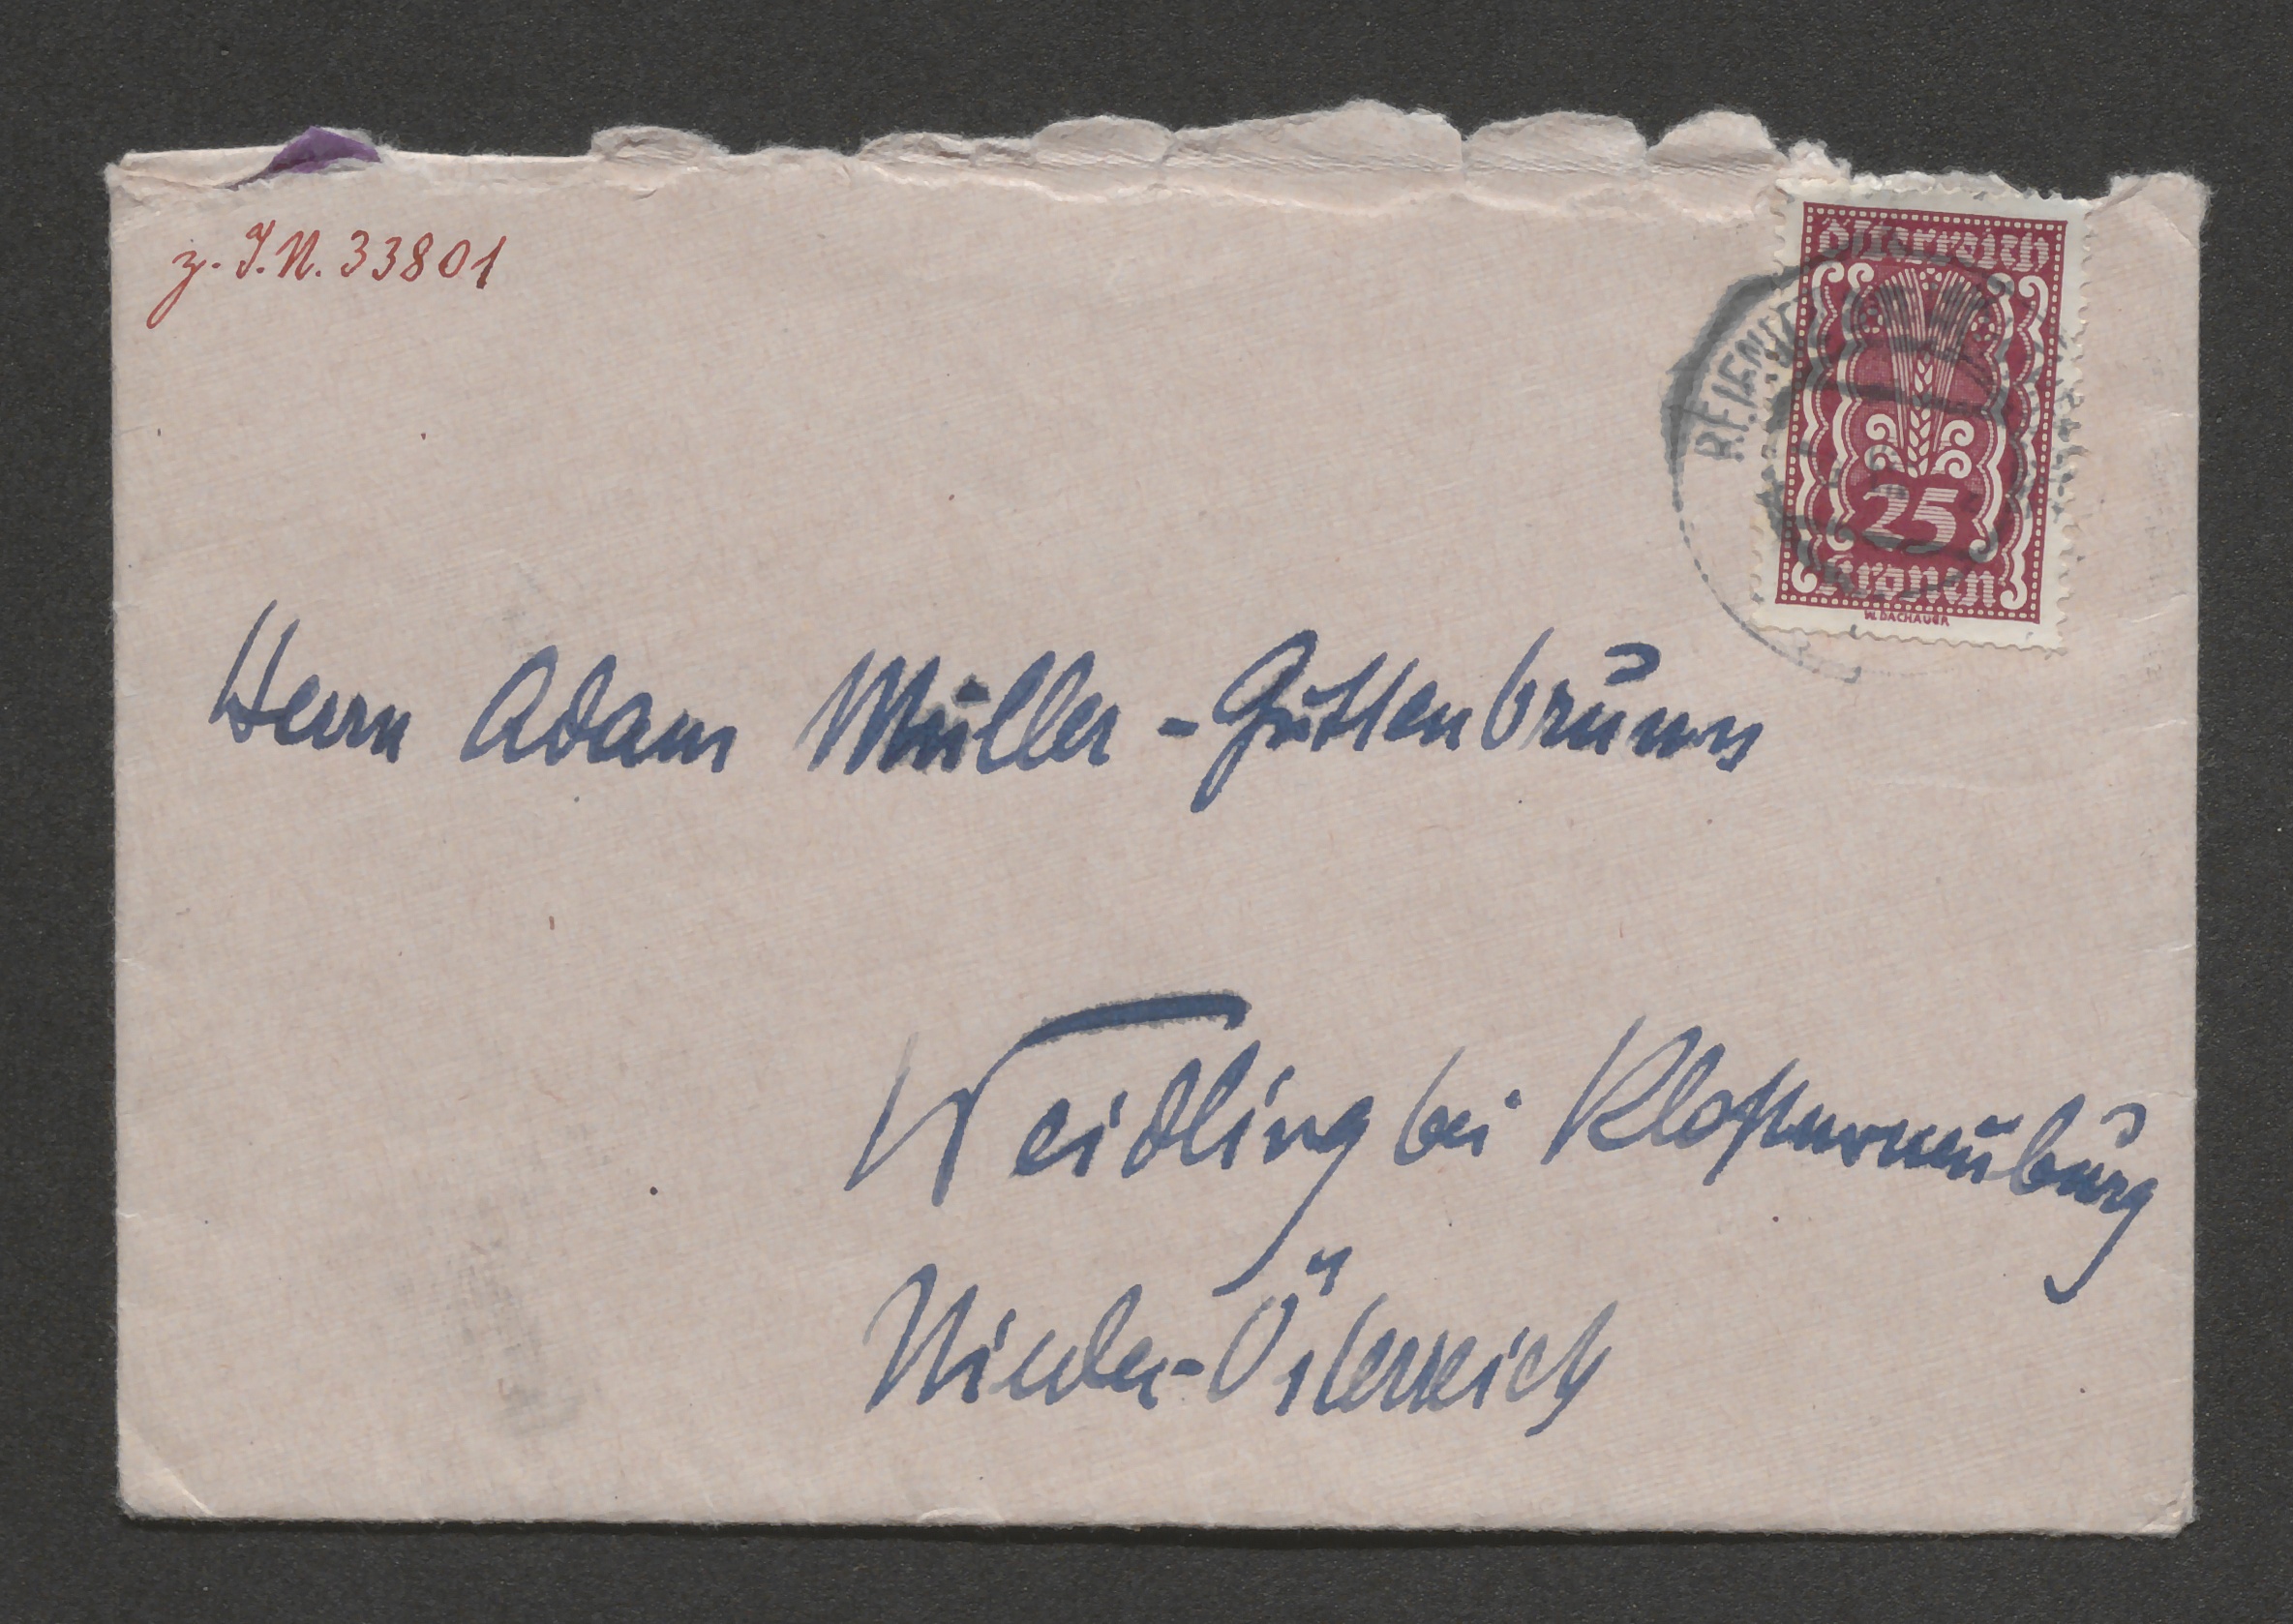 z. I.N. 33801
Österreich
25
Kronen
W. DACHAUER
Herrn Adam Müller-Guttenbrunn
Weidling bei Klosterneuburg
Nieder-Österreich